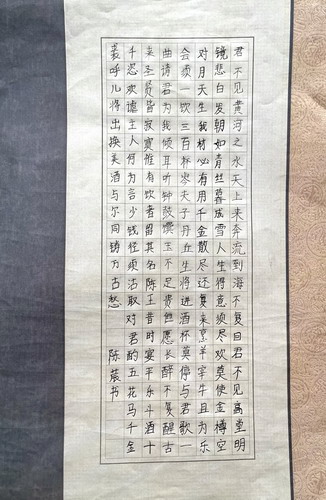 君不见黄河之水天上来奔流到海不复回君不见高堂明
镜悲白发朝如青丝暮成雪人生得意须尽欢莫使金樽空
对月天生我材必有用千金散尽还复来烹羊宰牛且为乐
会须一饮三百杯岑夫子丹丘生将进酒杯莫停与君歌一
曲请君为我倾耳听钟鼓馔玉不足贵愿长醉不复醒古
来圣贤皆寂寞惟有饮者留其名陈王昔时宴平乐斗酒十
千恣欢谑主人何为言少钱径须沽取对君酌五花马千金
裘呼儿将出换美酒与尔同万古愁 陈书